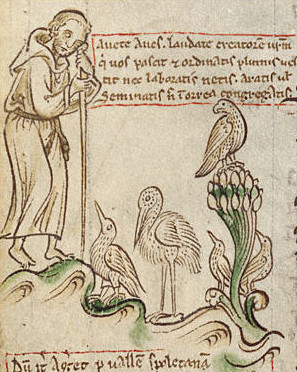 Avete Aves. laudate creatorem urm
q̇ vos pascit ⁊ ordinatis plumis ves
tit nec laboratis netis. aratis ul̃
Seminatis ñ horrea congregatis
Dũ it̃ p uallẽ spoletanã